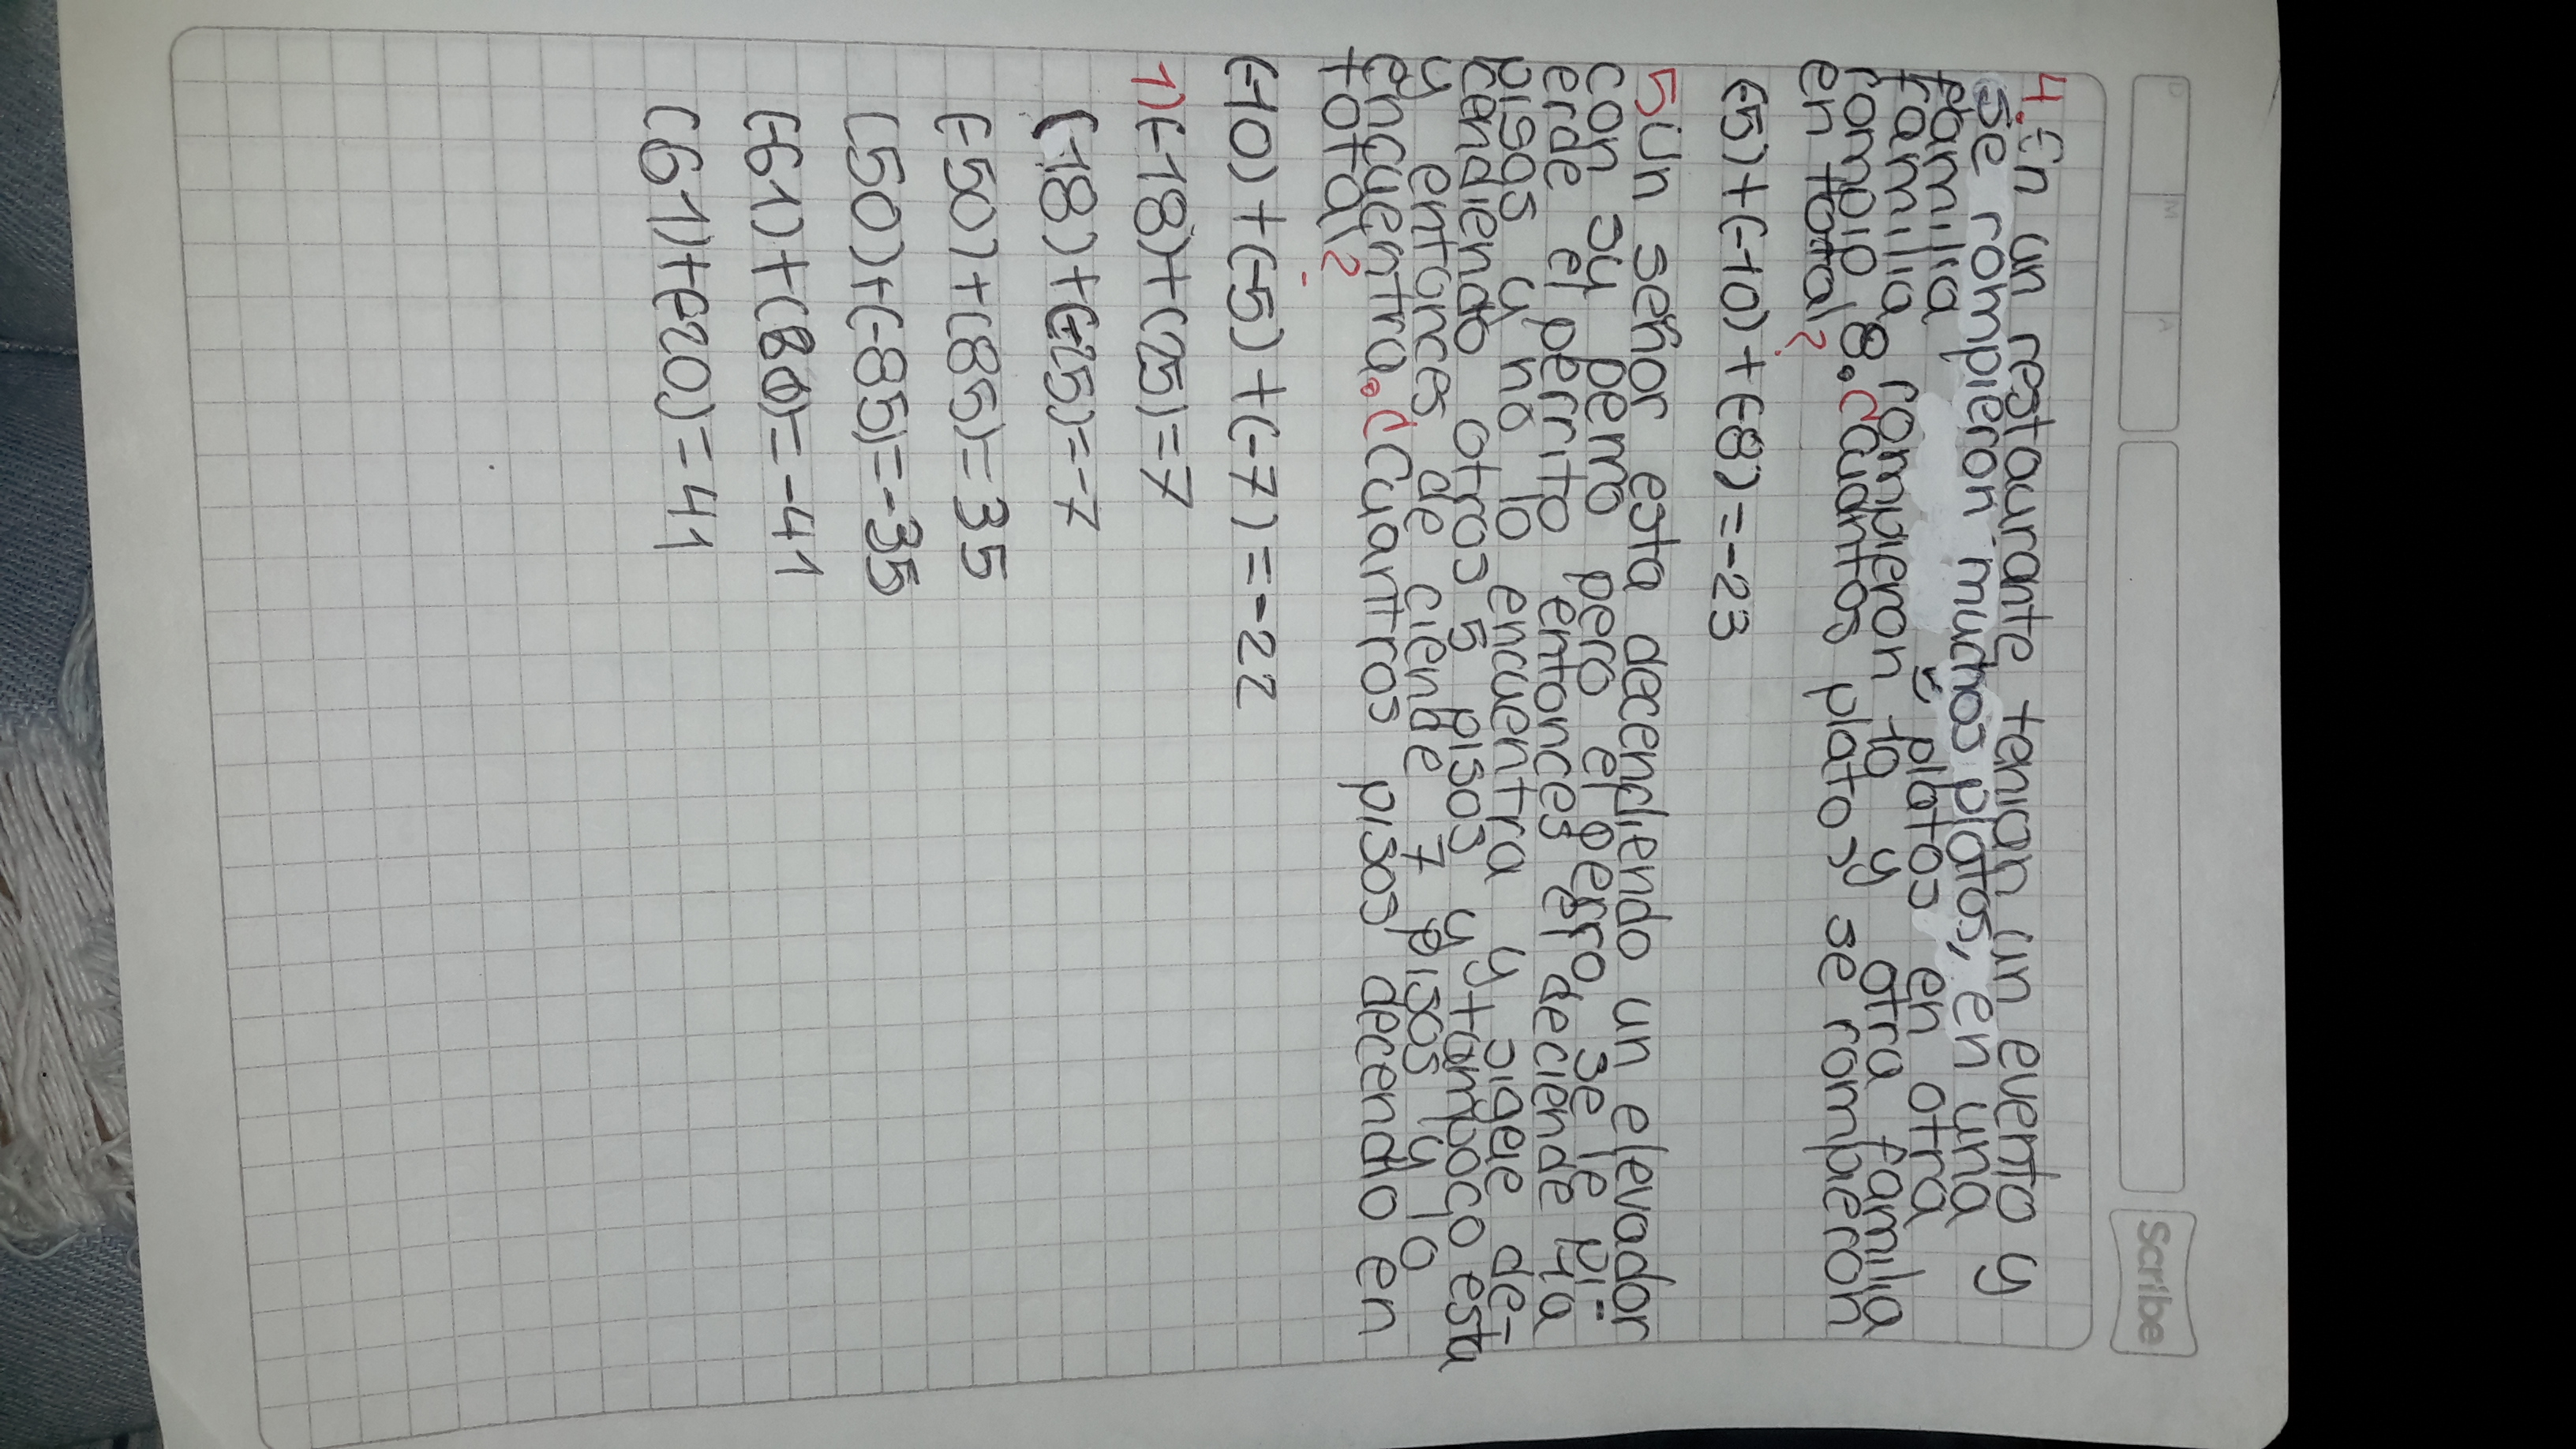 D M A
Scribe
4. En un restaurante tenian un evento y
se rompieron muchos platos, en una
familia 5 platos en otra
familia rompieron 10 y otra familia
rompio 8. ¿Cuántos platos se rompieron
en total?
(-5)+(-10)+(-8)=-23
5 Un señor esta decendiendo un elevador
con su perro pero el perro se le pi-
erde el perrito entonces el deciende
pisos y no lo encuentra y sigue de-
cendiendo otros 5 pisos y tampoco esta
y entonces deciende 7 pisos y lo
encuentra. ¿Cuantros pisos decendio en
total?
(-10)+(-5)+(-7)=-22
1)(-18)+(25)=7
(18)+(-25)=-7
(-50)+(85)=35
(50)+(-85)=-35
(-61)+(20)=-41
(61)+(-20)=41